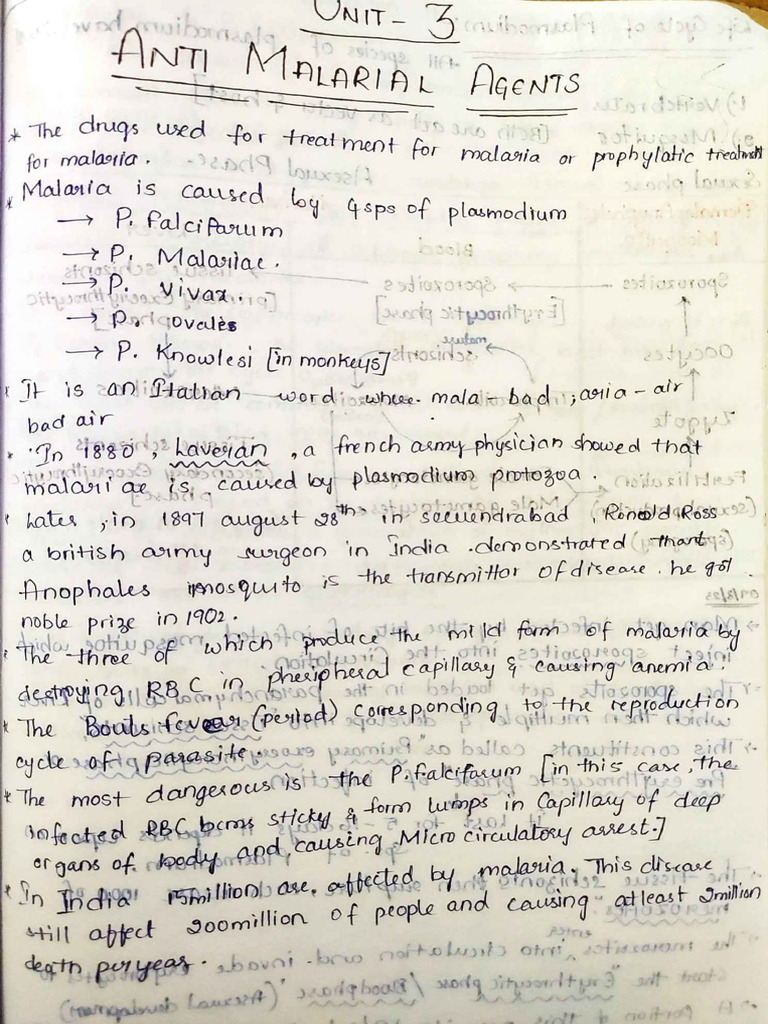 UNIT- 3
ANTI MALARIAL AGENTS
* The drugs used for treatment for malaria or prophylatic treatment
for malaria.
* Malaria is caused by 4sps of plasmodium
→ P. falcifarum
→ P. Malariae.
→ P. vivax.
→ P. ovales
→ P. Knowlesi [in monkeys]
* It is an Italian word where mala - bad ; aria - air
bad air
* In 1880, Laveran, a french army physician showed that
malari ae is caused by plasmodium protozoa.
* Later, in 1897 august 28th in secuendrabad, Ronold Ross
a british army surgeon in India demonstrated thant
Anophales mosquito is the transmittor of disease. he got
noble prize in 1902.
* The three of which produce the mild form of malaria by
destroying RBC in pheripheral capillary & causing anemia.
* The Bouts fever (period) corresponding to the reproduction
cycle of parasite.
* The most dangerous is the P. falcifarum [in this case, the
infected RBC bcms sticky & form lumps in capillary of deep
organs of body and causing Micro circulatory arrest.]
* In India 15million are affected by malaria. This disease
still affect 200million of people and causing atleast 2million
death per year.